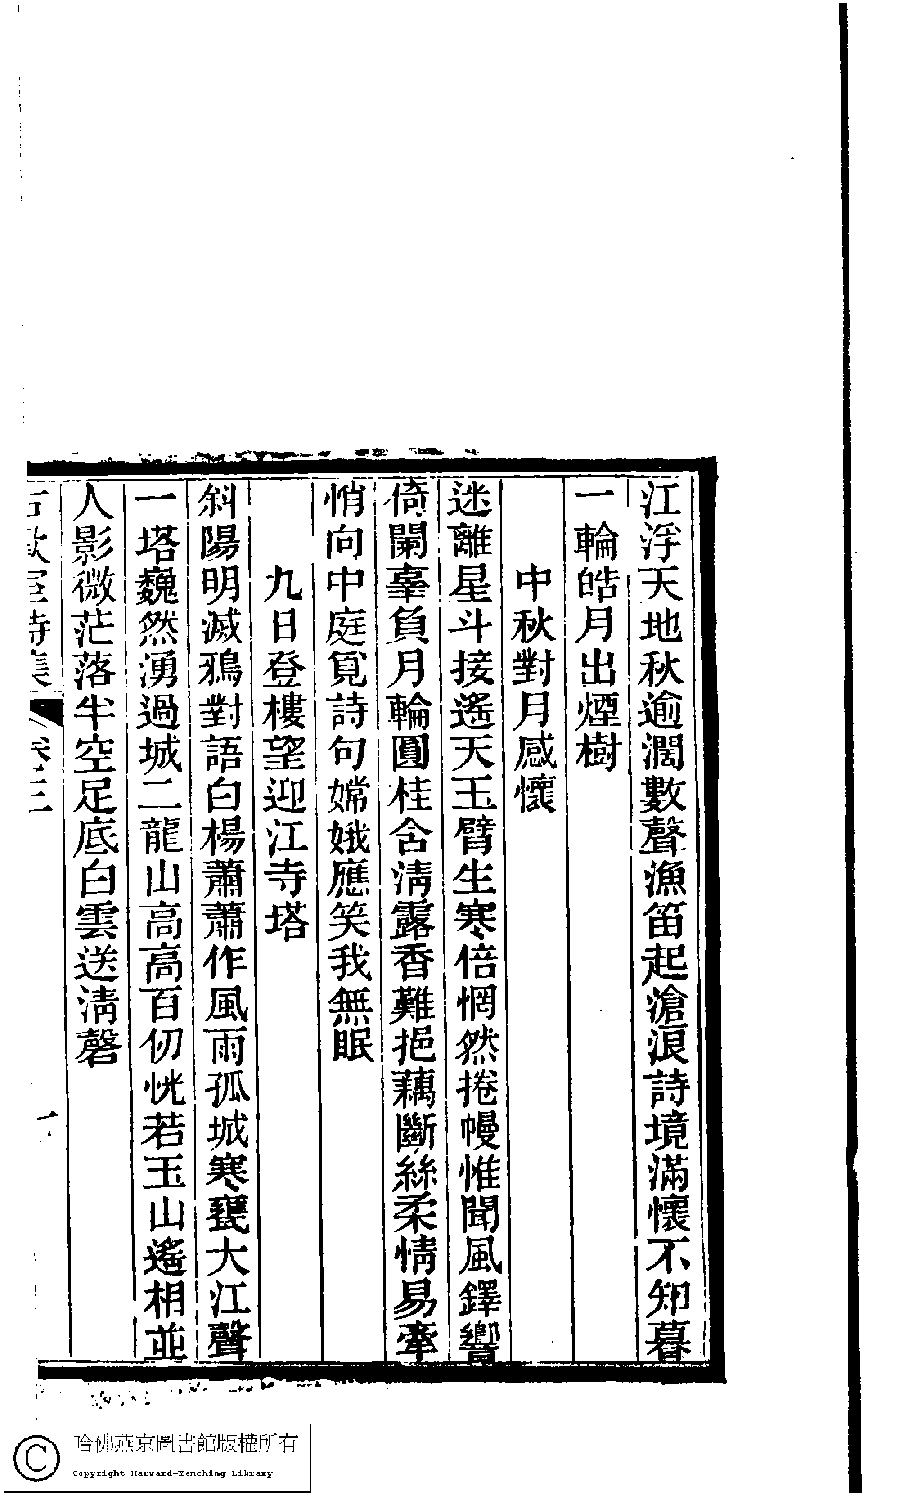 江浮天地秋逾濶數聲漁笛起滄浪詩境滿懷不知暮
一輪皓月出煙樹
中秋對月感懷
迷離星斗接遙天玉臂生寒倍惘然捲幔惟聞風鐸響
倚闌辜負月輪圓桂含淸露香難挹藕斷絲柔情易牽
悄向中庭覓詩句嫦娥應笑我無眠
九日登樓望迎江寺塔
斜陽明滅鴉對語白楊蕭蕭作風雨孤城寒甕大江聲
一塔巍然湧過城二龍山高高百仞恍若玉山遙相並
人影微茫落半空足底白雲送淸磬
室詩集
卷三
哈佛燕京圖書館版權所有
Copyright Harvard-Yenching Library